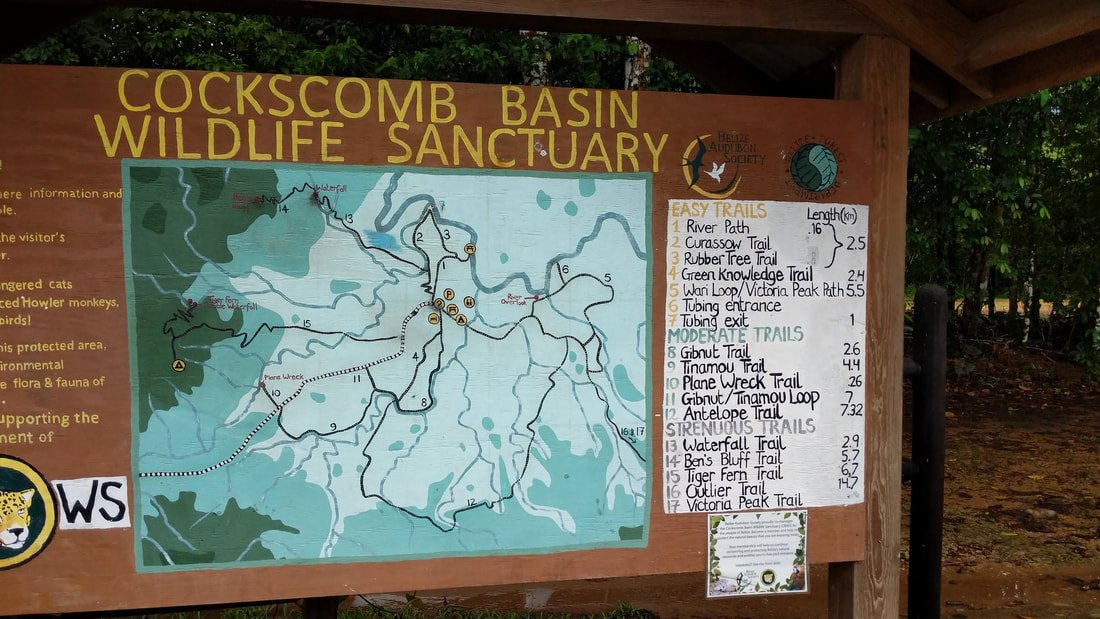 COCKSCOMB BASIN
WILDLIFE SANCTUARY
here information and
the visitor's
ngered cats
ced Howler monkeys,
birds!
his protected area,
ironmental
e flora & fauna of
upporting the
ment of
WS
Waterfall
14
13
2
3
1
7
6
5
River Overlook
Tiger Fern
Waterfall
15
Plane Wreck
10
11
4
8
9
12
16 & 17
P
BELIZE
AUDUBON
SOCIETY
EASY TRAILS Length (km)
1 River Path .16
2 Curassow Trail 2.5
3 Rubber Tree Trail
4 Green Knowledge Trail 2.4
5 Wari Loop/Victoria Peak Path 5.5
6 Tubing entrance
7 Tubing exit 1
MODERATE TRAILS
8 Gibnut Trail 2.6
9 Tinamou Trail 4.4
10 Plane Wreck Trail .26
11 Gibnut/Tinamou Loop 7
12 Antelope Trail 7.32
STRENUOUS TRAILS
13 Waterfall Trail 2.9
14 Ben's Bluff Trail 5.7
15 Tiger Fern Trail 6.7
16 Outlier Trail 14.7
17 Victoria Peak Trail